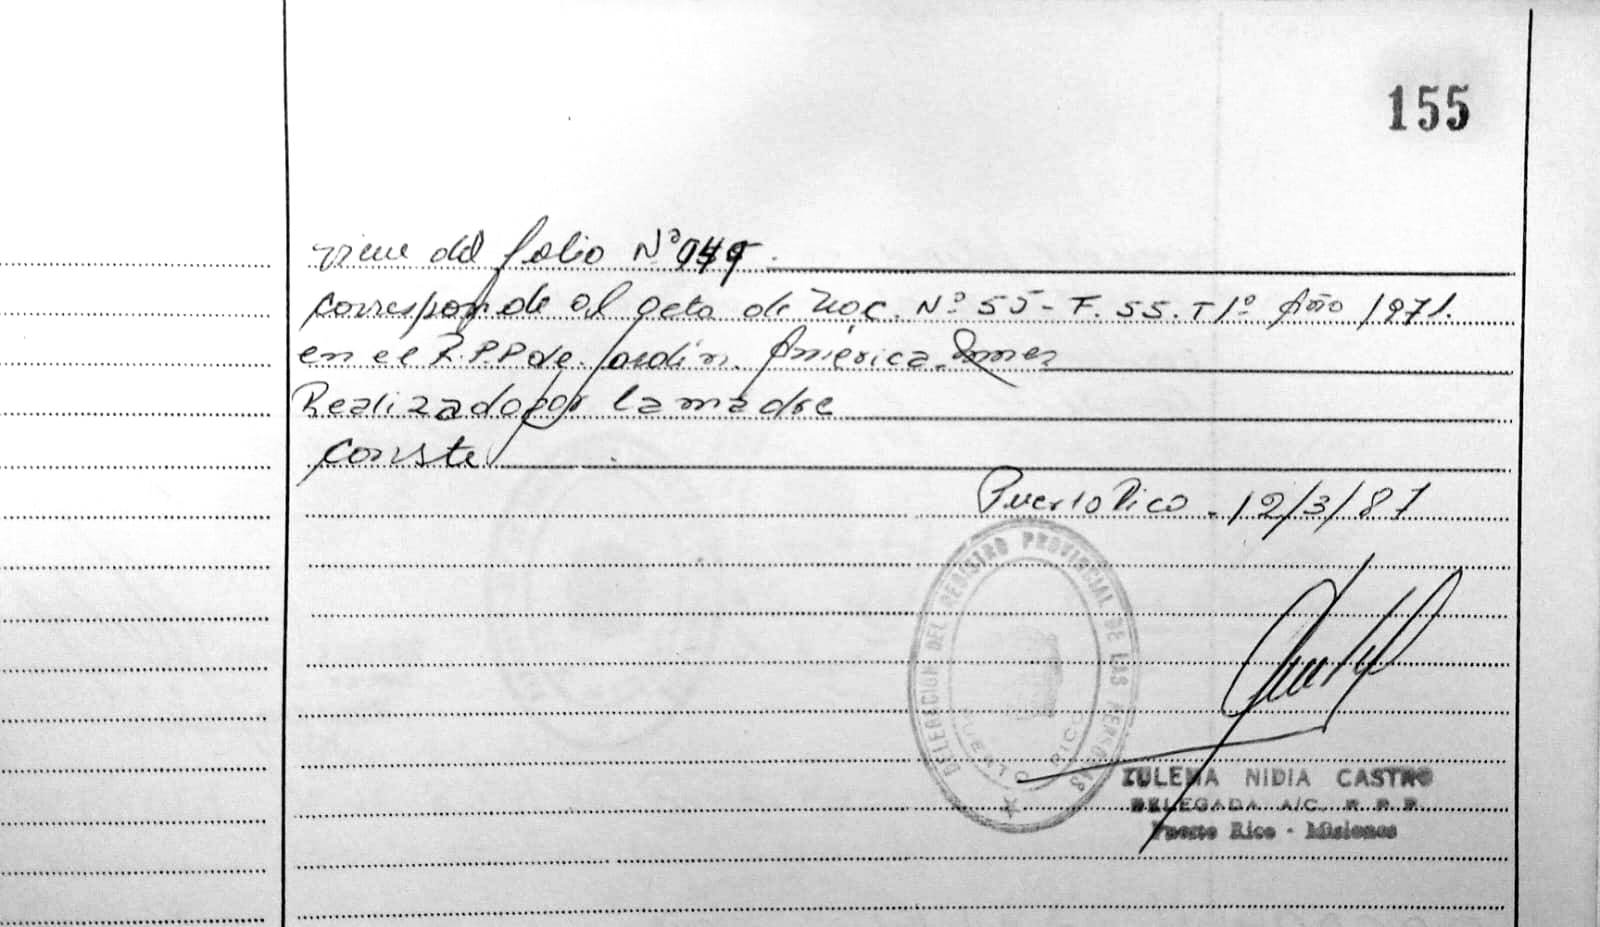 155
viene del folio Nº
corresponde al acta de Nac. Nº 55-F.55.T1º Año 1971.
en el R.P.P de Jardín América.
Realizado por la madre
Conste
Puerto Rico - 12/3/87
DELEGACION DEL REGISTRO PROVINCIAL DE LAS PERSONAS
PUERTO RICO
ZULEMA NIDIA CASTRO
DELEGADA A/C. R.P.P.
Puerto Rico - Misiones